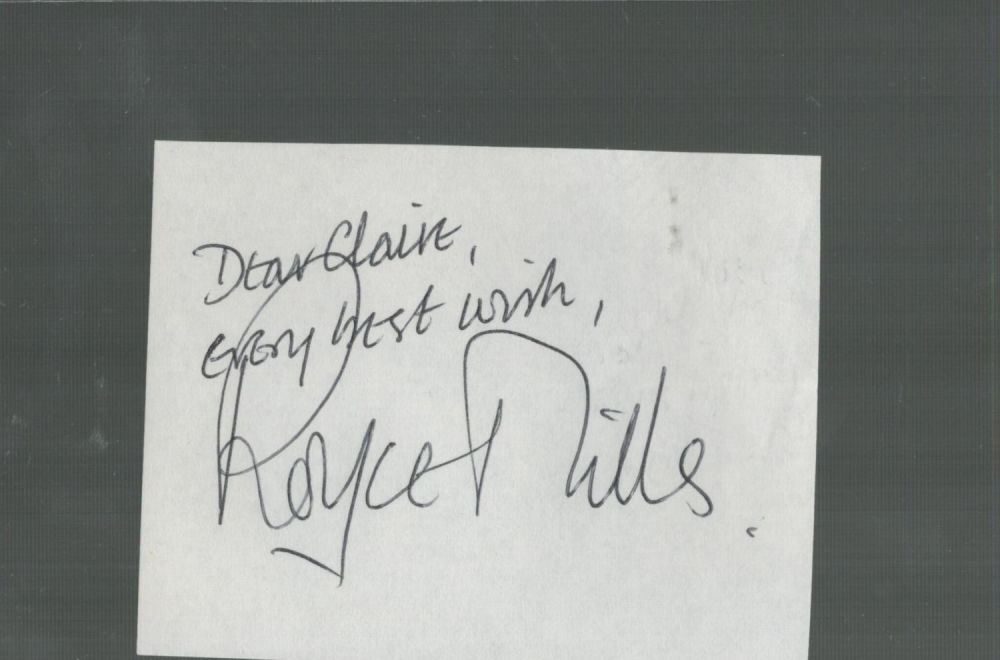 Dear Claire,
every best wish,
Royce Mills.